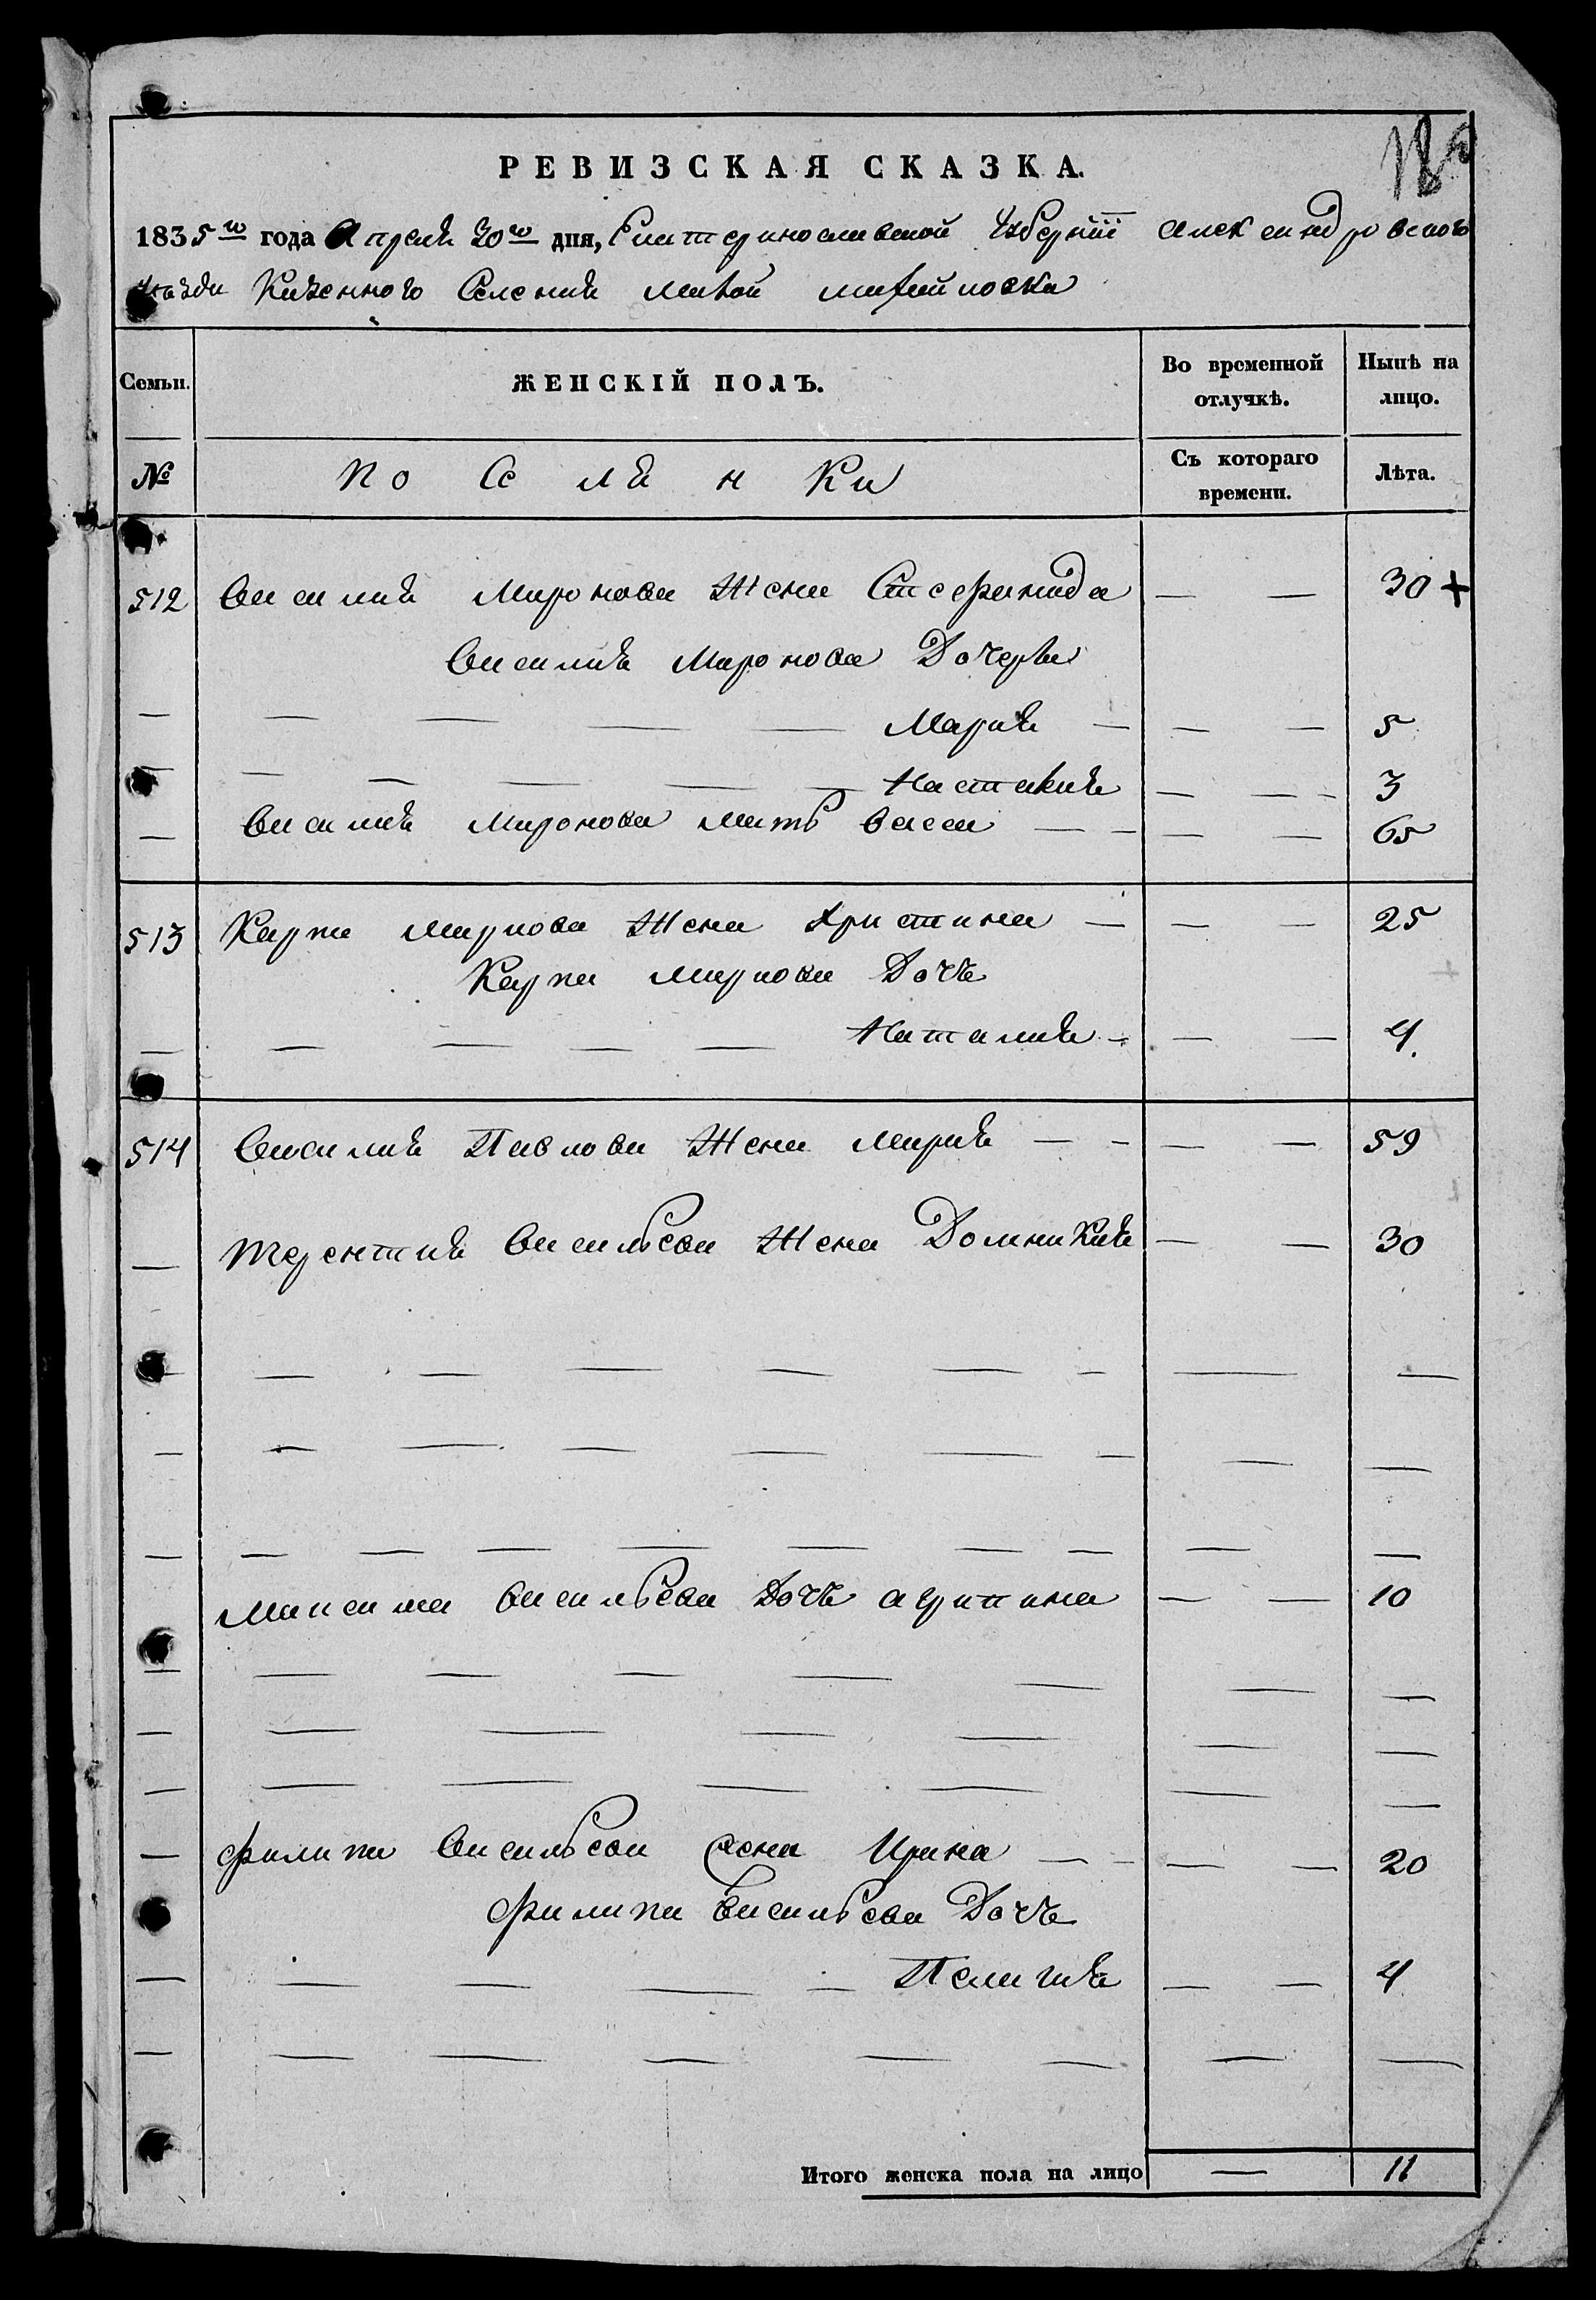 РЕВИЗСКАЯ СКАЗКА.
1835го года Апреля 30го дня, Екатеринославской Губернiи Александровского
уезда Казенного Селения Малой михайловки
Семьи.
ЖЕНСКІЙ ПОЛЪ.
Во временной отлучкѣ.
Нынѣ на лицо.
№
По се ля н ки
Съ котораго времени.
Лѣта.
512 Василия Миронова Жена Стефанида — — 30 +
Василия Миронова Дочери
— — — — — Мария — — — 5
— — — — — — Настакия — — - 3
— Василия Миронова мать Васса — — — — 65
513 Карпа Миронова Жена Христина — — — 25
Карпа Миронова Дочь
— — — — — Наталия — — — 4.
514 Василия Павлова Жена Мария — — — — 59
— Терентия Васильева Жена Домникия — — 30
— — — — — — — —
— — — — — — — — —
— — — — — — — — — —
Максима Васильева Дочь агрипина — — 10
— — — — — — — —
— — — — — — —
— — — — — — —
— Филипа Васильева жена Ирина — — — — 20
Филипа Васильева Дочь
— — — — — Пелагия — — 4
— — — — — — — —
Итого женска пола на лицо — 11